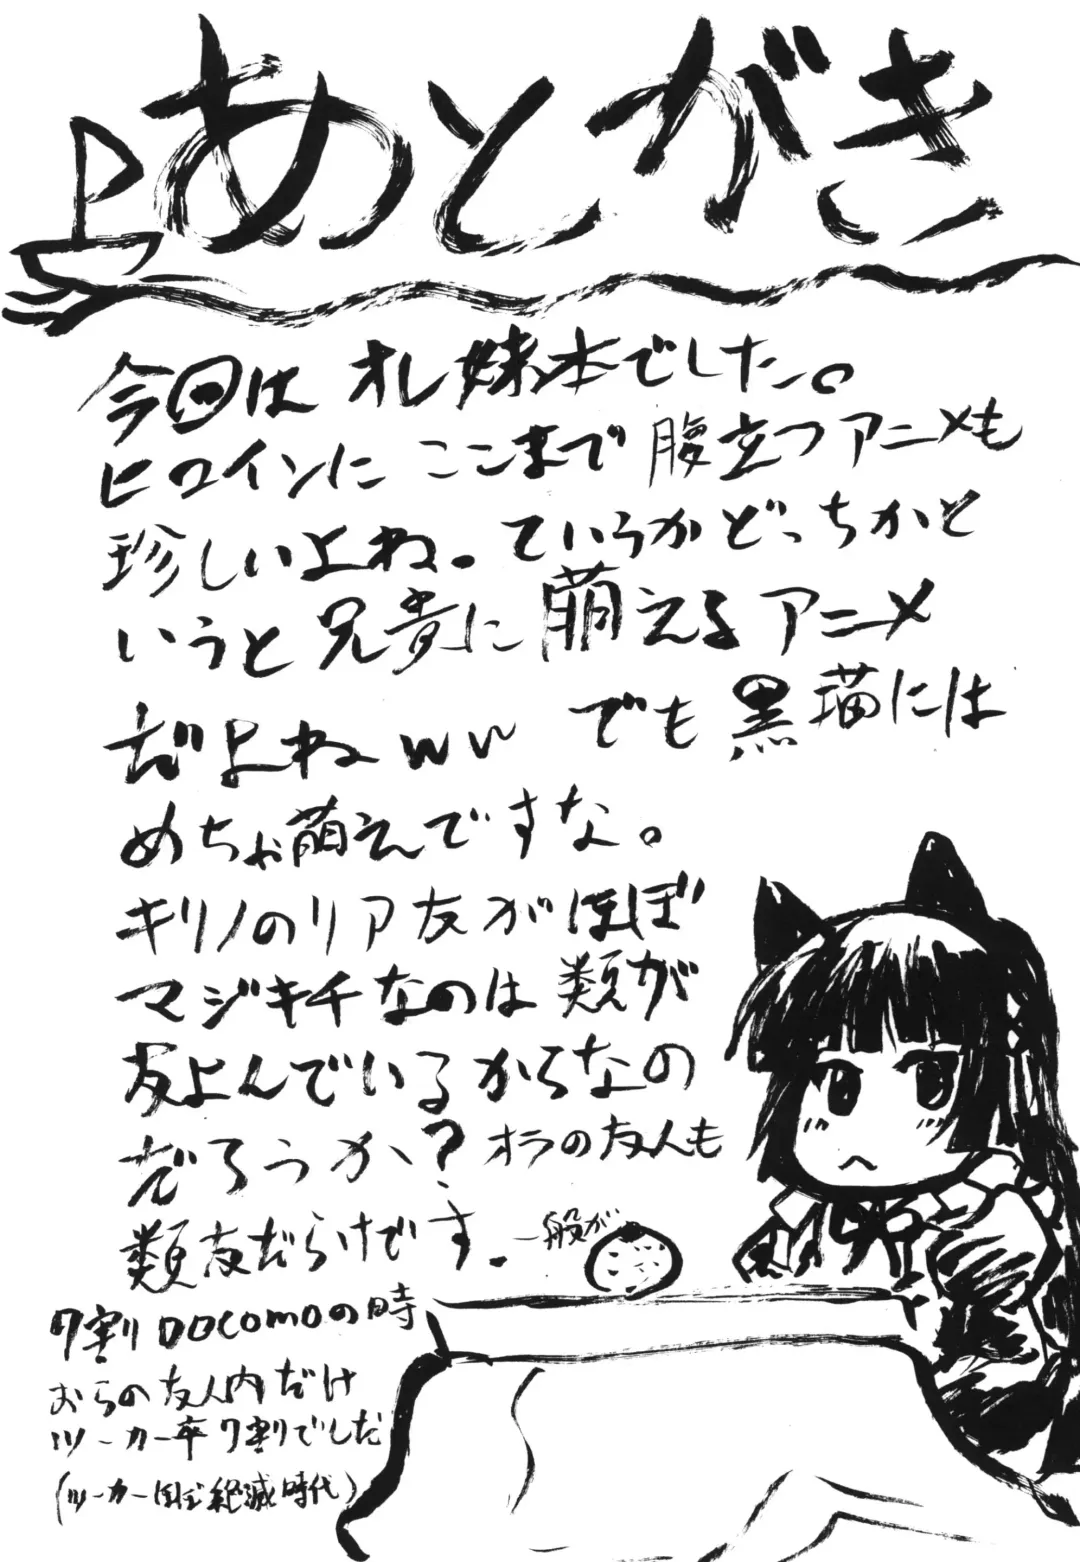 あとがき
今回は オレ妹本でした。
ヒロインに ここまで 腹立つアニメも
珍しいよね。ていうかどっちかと
いうと 兄貴に 萌えるアニメ
だよねww でも 黒猫には
めちゃ萌えですな。
キリノのリア友がほぼ
マジキチなのは 類が
友よんでいるからなの
だろうか？オラの友人も
類友だらけです。一般が
7割DOCOMOの時
おらの友人内だけ
ツーカー率7割でした
(ツーカーほぼ絶滅時代)